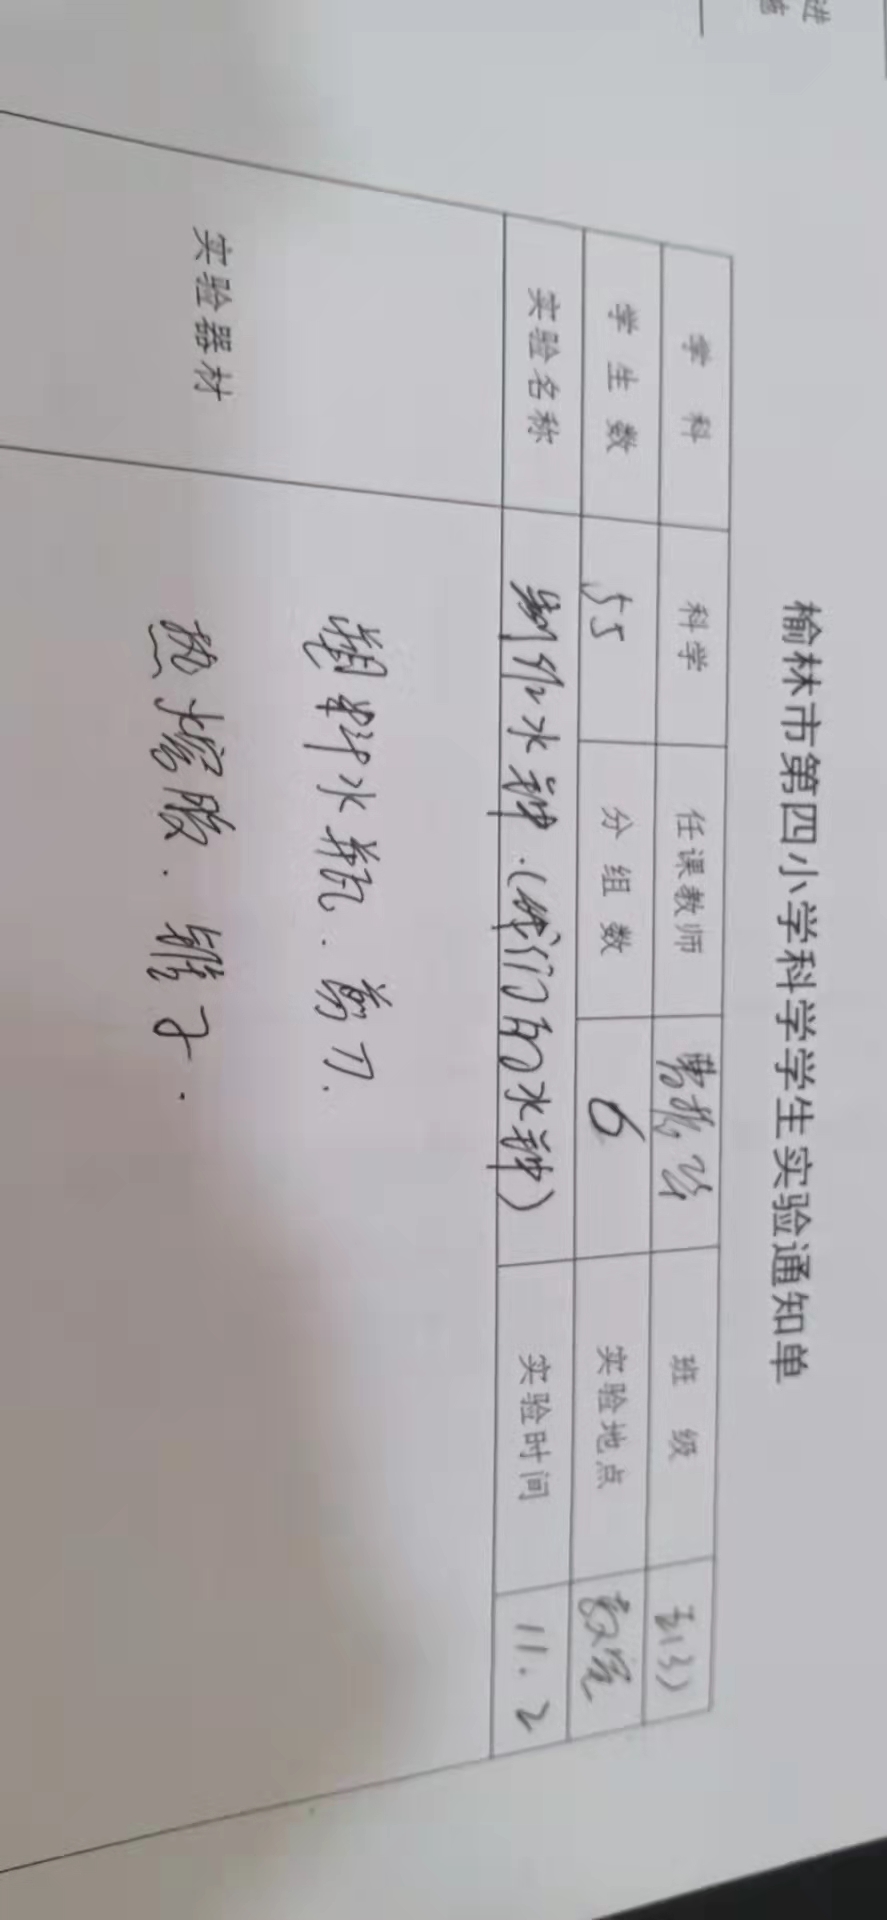 进
榆林市第四小学科学学生实验通知单
学科 科学 任课教师 班级 五(3)
学生数 55 分组数 6 实验地点 教室
实验名称 制作水钟.(我们的水钟) 实验时间 11.2
实验器材 塑料水瓶.剪刀.
热熔胶.锥子.